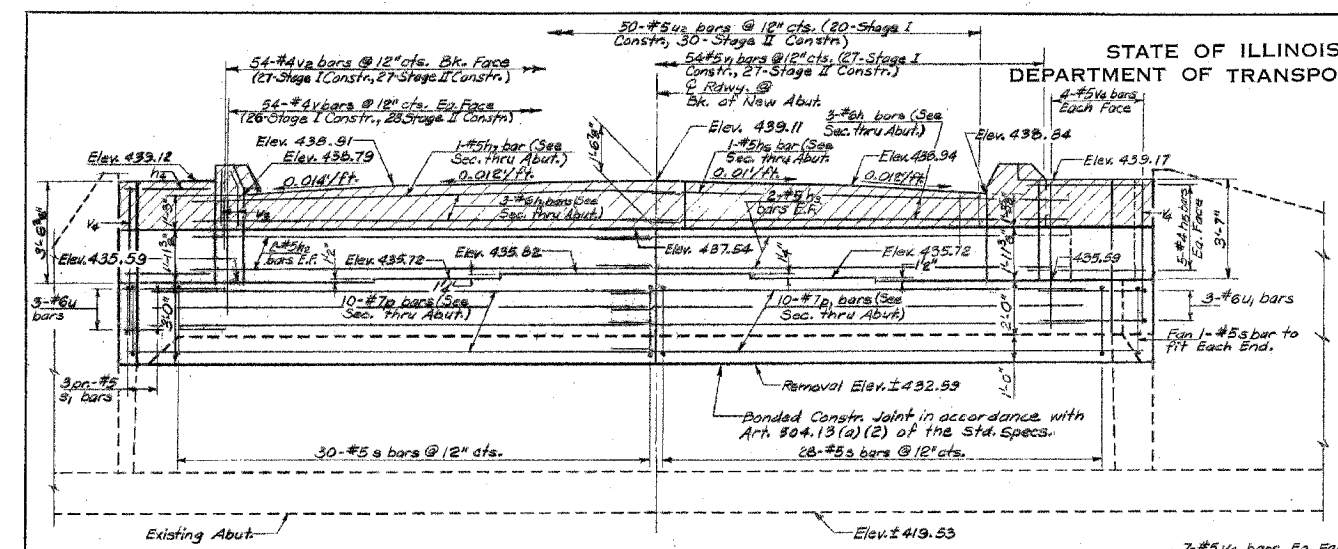 50-#5u2 bars @ 12" cts. (20-Stage I
Constr., 30-Stage II Constr.)
STATE OF ILLINOIS
DEPARTMENT OF TRANSPO
54-#4v2 bars @ 12" cts. Bk. Face
(27-Stage I Constr., 27-Stage II Constr.)
54-#5v1 bars @ 12" cts. (27-Stage I
Constr., 27-Stage II Constr.)
54-#4v bars @ 12" cts. Ea. Face
(26-Stage I Constr., 28 Stage II Constr.)
℄ Rdwy. @
Bk. of New Abut.
4-#5v3 bars
Each Face
Elev. 439.12
Elev. 438.91
Elev. 438.79
1-#5h7 bar (See
Sec. thru Abut.)
1'-6 7/8"
Elev. 439.11
3-#6h bars (See
Sec. thru Abut.)
1-#5h6 bar (See
Sec. thru Abut.)
Elev. 438.94
Elev. 438.84
Elev. 439.17
h4
0.014'/ft.
0.012'/ft.
0.01'/ft.
0.012'/ft.
3-#6h1 bars (See
Sec. thru Abut.)
2-#5h3
bars E.F.
v3
v4
v4
5-#4h5 bars
Ea. Face
3'-7"
3'-6 3/8"
1'-11 3/8"
1'-11 3/8"
2-#5h2
bars E.F.
Elev. 435.59
Elev. 435.72
Elev. 435.82
Elev. 437.54
Elev. 435.72
435.59
1/2"
1 1/4"
1 1/4"
1/2"
3-#6u
bars
3'-0"
10-#7p bars (See
Sec. thru Abut.)
10-#7p1 bars (See
Sec. thru Abut.)
2'-0"
3-#6u1 bars
Fan 1-#5s bar to
fit Each End.
3 pr.-#5
s1 bars
Removal Elev. ± 432.59
1'-0"
Bonded Constr. Joint in accordance with
Art. 504.13(a)(2) of the Std. Specs.
30-#5 s bars @ 12" cts.
28-#5 s bars @ 12" cts.
Existing Abut.
Elev. ± 419.53